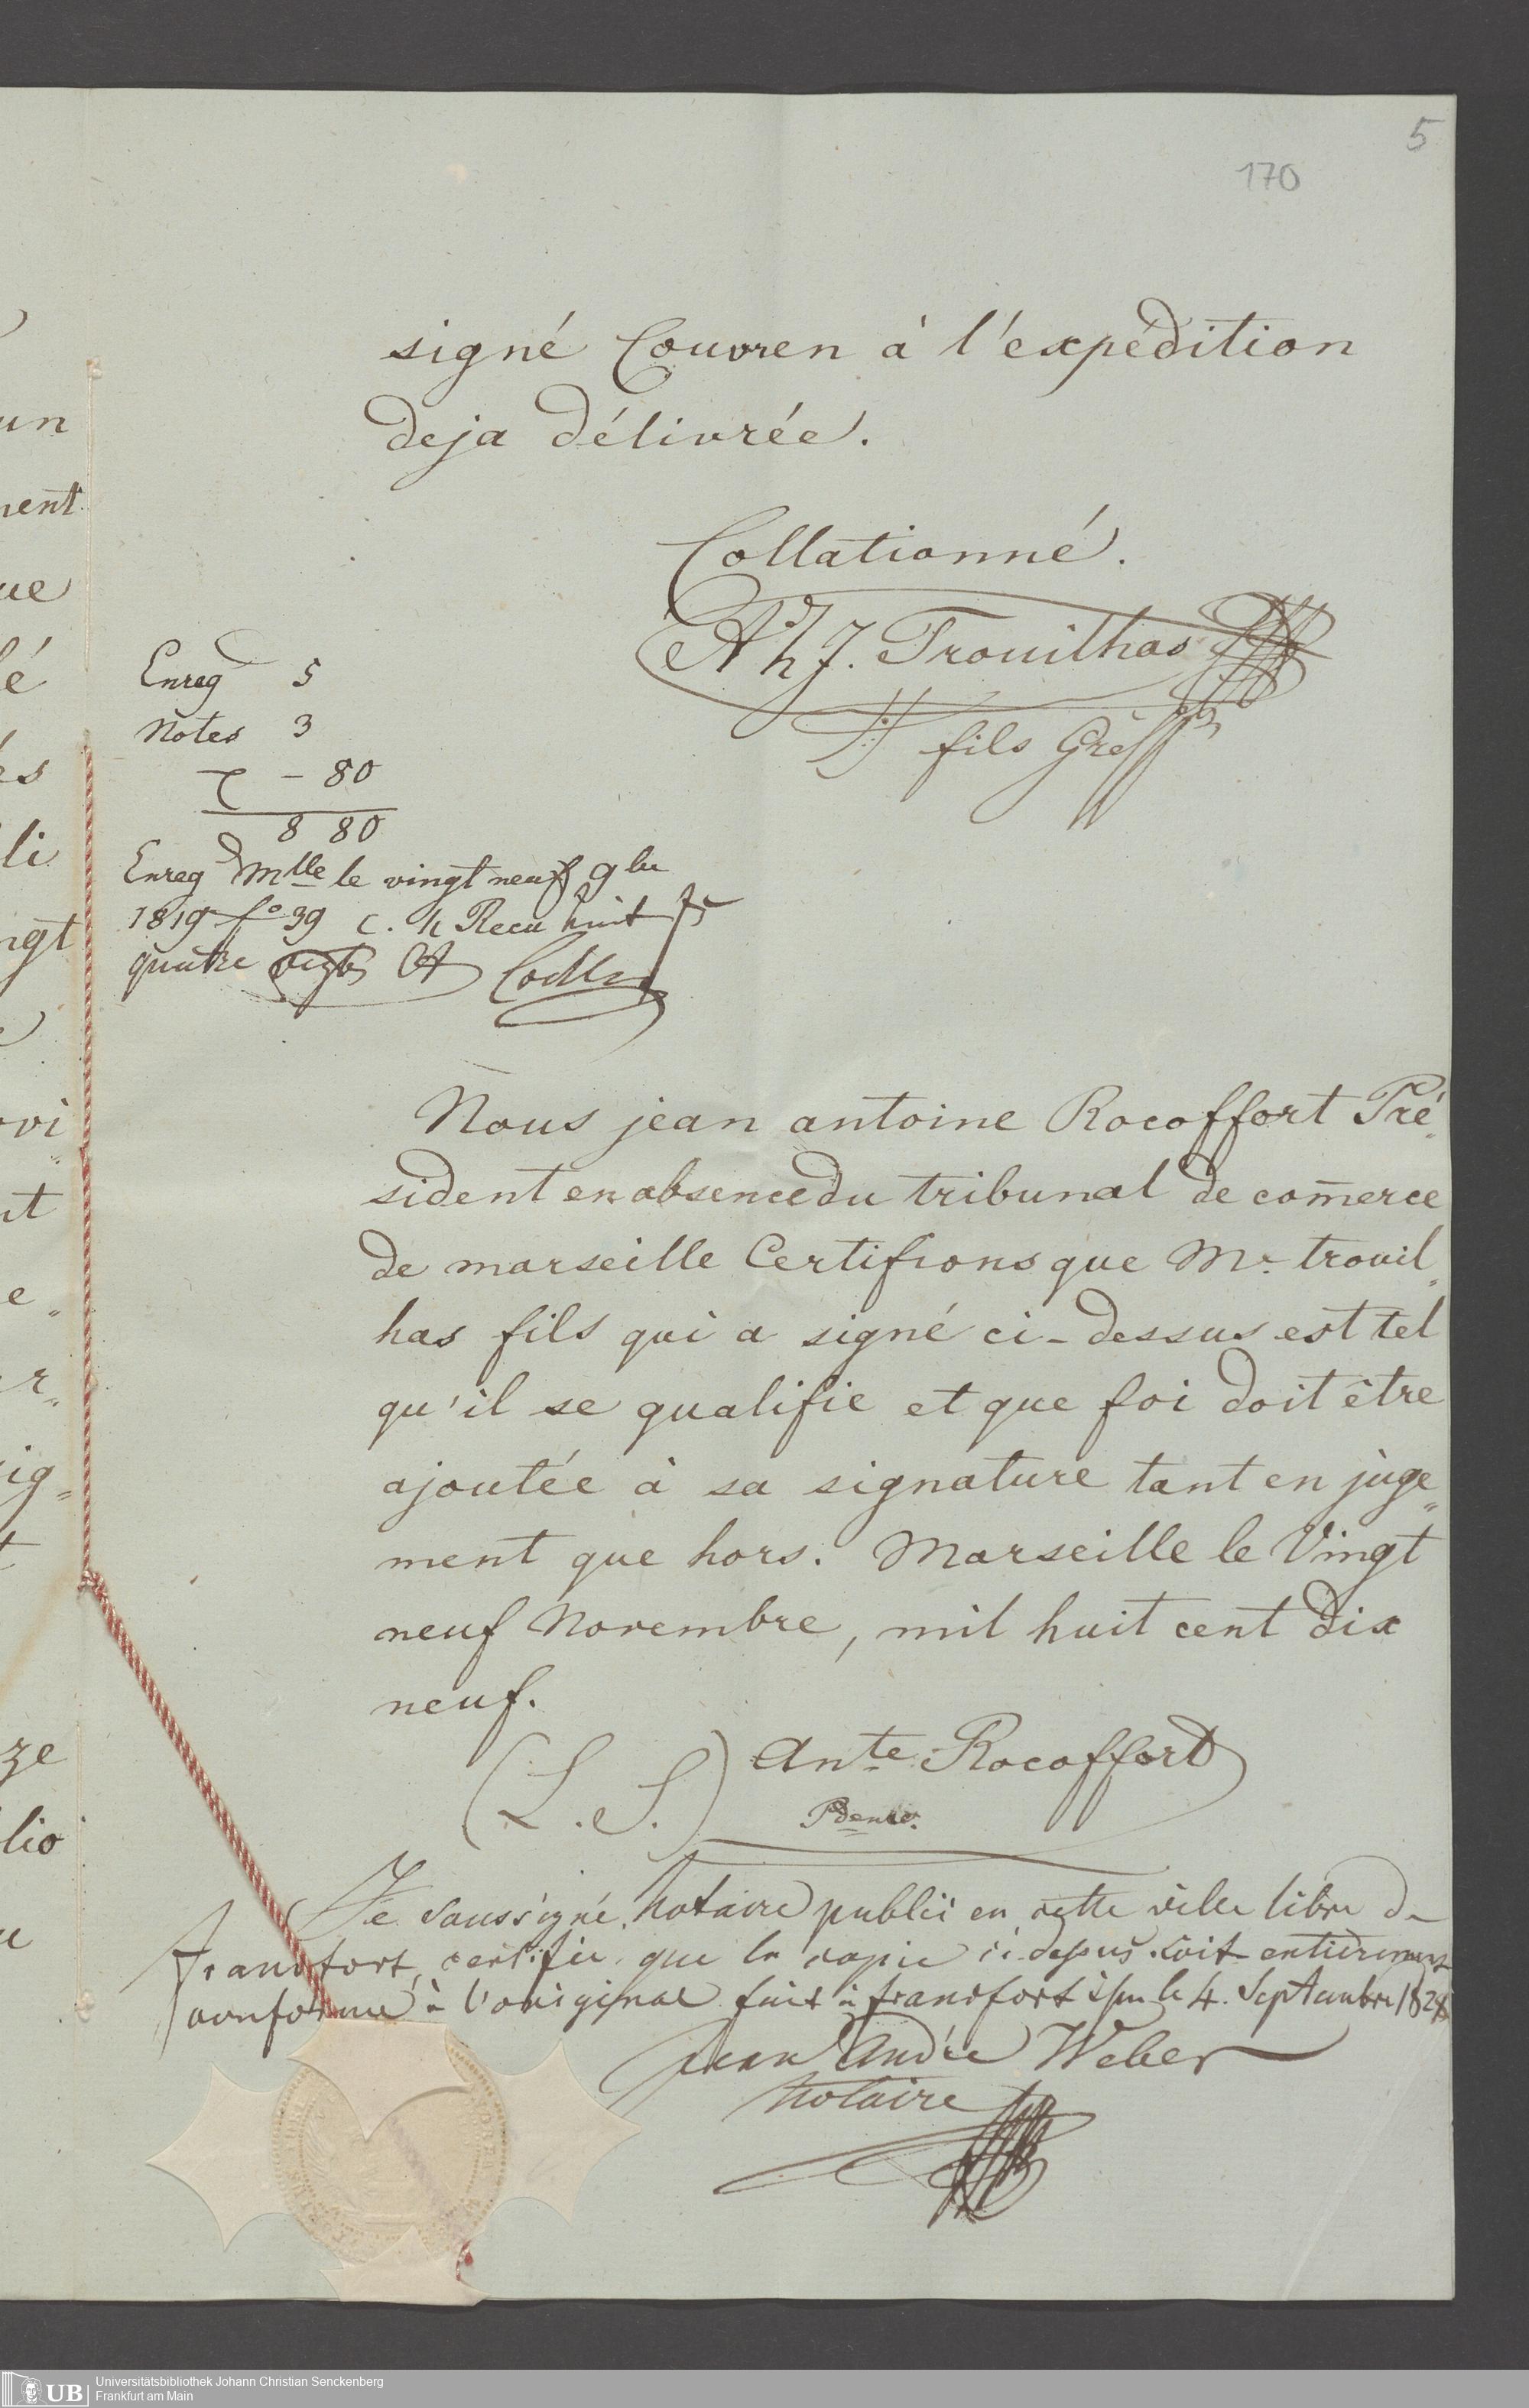 5
170
signé Couvren à l'expédition
deja délivrée.
Collationné.
Ah J. Trouilhas
fils Greff
Enreg 5
Notes 3
- 80
8 80
Enreg Mlle le vingt neuf 9bre
1819 fo 39 c. h Recu huit fr
quatre vingts
Nous jean antoine Rocoffort Pré
sident en absence du tribunal de com̄erce
de marseille Certifions que Mr. trouil
has fils qui a signé ci-dessus est tel
qu'il se qualifie et que foi doit être
ajoutée à sa signature tant en juge
ment que hors. Marseille le Vingt
neuf Novembre, mil huit cent dix
neuf.
(L. S.) Ante. Rocoffort
Je soussigné, Notaire public en cette ville libre de
francfort, certifie que la copie ci dessus soit entièrement
conforme à l'original fait à francfort s/m le 4. Septembre 182
Jean André Weber
Notaire
un
nent
ue
lé
és
li
ngt
ovi
nt
e
r
ig
t
ze
lio
UB
Universitätsbibliothek Johann Christian Senckenberg
Frankfurt am Main